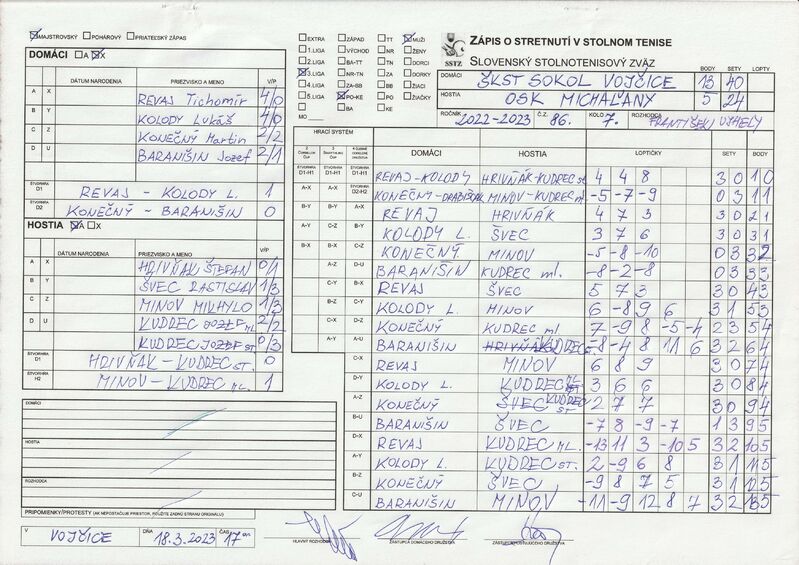 MAJSTROVSKÝ POHÁROVÝ PRIATEĽSKÝ ZÁPAS
DOMÁCI A X
DÁTUM NARODENIA PRIEZVISKO A MENO V/P
A X REVAJ Tichomír 4/0
B Y KOLODY Lukáš 4/0
C Z KONEČNÝ Martin 2/2
D U BARANIŠIN Jozef 2/1
ŠTVORHRA D1 REVAJ - KOLODY L. 1
ŠTVORHRA D2 KONEČNÝ - BARANIŠIN 0
HOSTIA A X
DÁTUM NARODENIA PRIEZVISKO A MENO V/P
A X HRIVŇÁK ŠTEFAN 0/1
B Y ŠVEC RASTISLAV 1/3
C Z MINOV MIVHYLO 1/3
D U KUDREC JOZEF ML. 2/2
KUDREC JOZEF ST. 0/3
ŠTVORHRA D1 HRIVŇÁK - KUDREC ST. 0
ŠTVORHRA H2 MINOV - KUDREC ML. 1
DOMÁCI
HOSTIA
ROZHODCA
PRIPOMIENKY/PROTESTY (AK NEPOSTAČUJE PRIESTOR, POUŽITE ZADNÚ STRANU ORIGINÁLU)
V VOJČICE DŇA 18.3.2023 ČAS 17 00
EXTRA ZÁPAD TT MUŽI
1.LIGA VÝCHOD NR ŽENY
2.LIGA BA-TT TN DORCI
3.LIGA NR-TN ZA DORKY
4.LIGA ZA-BB BB ŽIACI
5.LIGA PO-KE PO ŽIAČKY
BA KE
MO
SSTZ
ZÁPIS O STRETNUTÍ V STOLNOM TENISE
SLOVENSKÝ STOLNOTENISOVÝ ZVÄZ
BODY SETY LOPTY
DOMÁCI ŠKST SOKOL VOJČICE 13 40
HOSTIA OSK MICHAĽANY 5 24
ROČNÍK 2022-2023 Č.Z. 86. KOLO 7. ROZHODCA
HRACÍ SYSTÉM DOMÁCI HOSTIA LOPTIČKY SETY BODY
ŠTVORHRA D1-H1 ŠTVORHRA D1-H1 ŠTVORHRA D1-H1 REVAJ-KOLODY HRIVŇÁK-KUDREC st 4 4 8 3 0 1 0
A-X A-X ŠTVORHRA D2-H2 MINOV-KUDREC ml. -5 -7 -9 0 3 1 1
B-Y B-Y A-X REVAJ HRIVŇÁK 4 7 3 3 0 2 1
KOLODY L. ŠVEC 3 7 6 3 0 3 1
KONEČNÝ MINOV -5 -8 -10 0 3 3 2
BARANIŠIN KUDREC ml. -8 -2 -8 0 3 3 3
REVAJ ŠVEC 5 7 3 3 0 4 3
KOLODY L. MINOV 6 -8 9 6 3 1 5 3
KONEČNÝ KUDREC ml 7 -9 8 -5 -4 2 3 5 4
BARANIŠIN -8 -4 8 11 6 3 2 6 4
C-X REVAJ MINOV 6 8 9 3 0 7 4
D-Y KOLODY L. KUDREC ML 3 6 6 3 0 8 4
A-Z KONEČNÝ ŠVEC KUDREC ST 2 7 7 3 0 9 4
B-U BARANIŠIN ŠVEC -7 8 -9 -7 1 3 9 5
D-X REVAJ KUDREC ML. -13 11 3 -10 5 3 2 10 5
A-Y KOLODY L. KUDREC ST. 2 -9 6 8 3 1 11 5
B-Z KONEČNÝ ŠVEC -9 8 7 5 3 1 12 5
C-U BARANIŠIN MINOV -11 -9 12 8 7 3 2 13 5
HLAVNÝ ROZHODCA ZÁSTUPCA DOMÁCEHO DRUŽSTVA ZÁSTUPCA HOSŤUJÚCEHO DRUŽSTVA